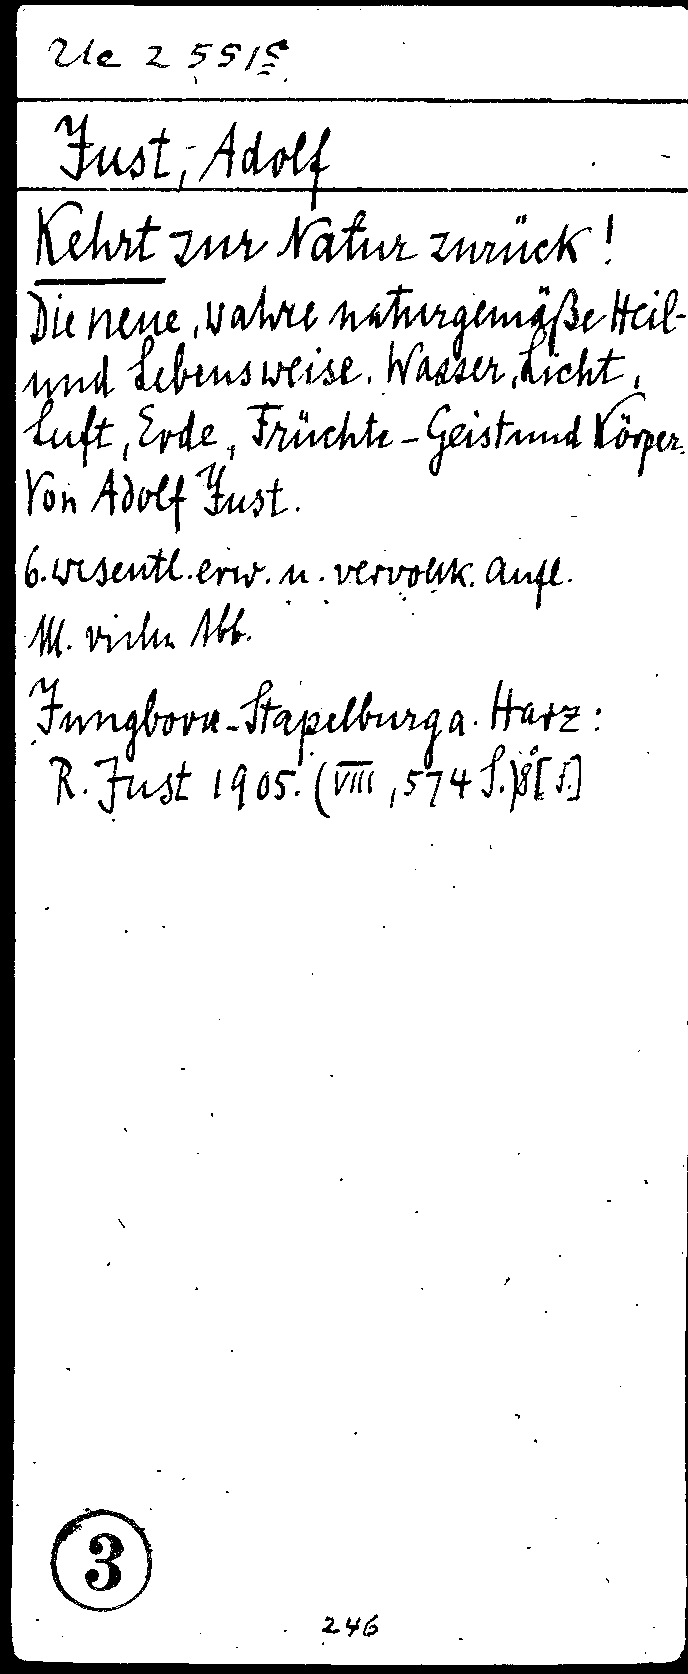 Uc 2551<sup>5</sup>
Just, Adolf
Kehrt zur Natur zurück!
Die neue, wahre naturgemäße Heil-
und Lebensweise. Wasser, Licht,
Luft, Erde, Früchte - Geist und Körper.
Von Adolf Just.
6. wesentl. erw. u. vervollk. Aufl.
M. vielen Abb.
Jungborn-Stapelburg a. Harz:
R. Just 1905. (VIII, 574 S.) 8° [S.]
3
246